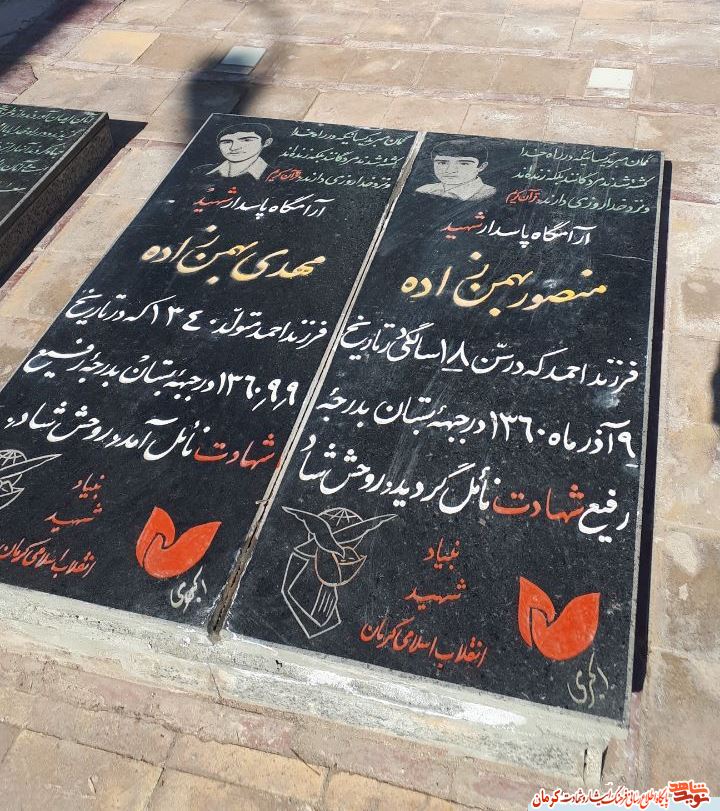 گمان مبر کسانیکه در راه خدا
کشته شدند مردگانند بلکه زنده‌اند
و نزد خدا روزی دارند. قرآن کریم
آرامگاه پاسدار شهید
منصور بهمن زاده
فرزند احمد که در سن ۱۸ سالگی در تاریخ
۹ آذر ماه ۱۳۶۰ در جبهه بستان بدرجه
رفیع شهادت نائل گردید. روحش شاد
بنیاد
شهید
انقلاب اسلامی کرمان
گمان مبر کسانیکه در راه خدا
کشته شدند مردگانند بلکه زنده‌اند
و نزد خدا روزی دارند. قرآن کریم
آرامگاه پاسدار شهید
مهدی بهمن زاده
فرزند احمد متولد ۱۳۴۰ که در تاریخ
۱۳۶۰،۹،۹ در جبهه بستان بدرجه رفیع
شهادت نائل آمد. روحش شاد.
بنیاد
شهید
انقلاب اسلامی کرمان
نوید شاهد
پایگاه اطلاع رسانی فرهنگ ایثار و شهادت کرمان